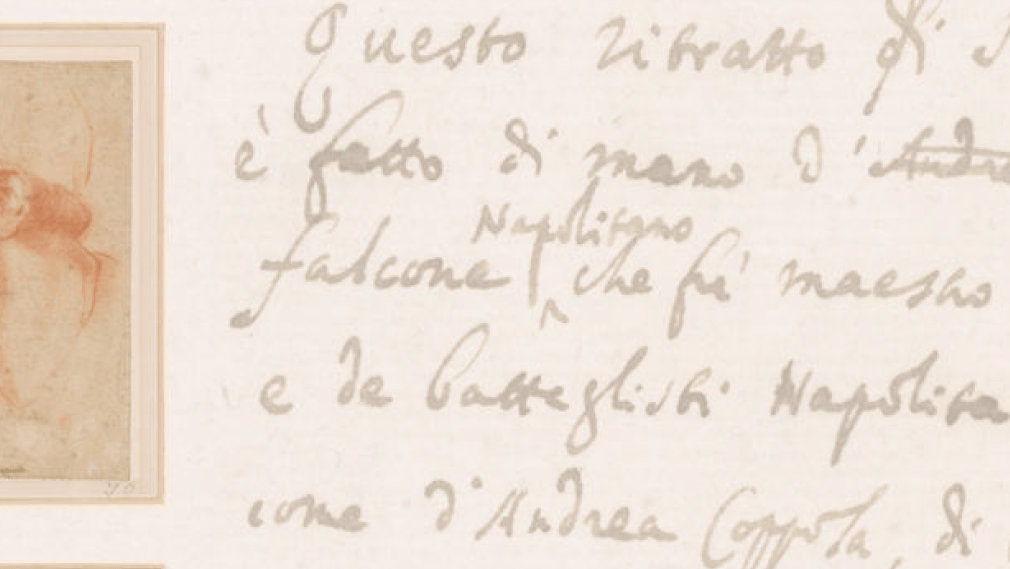 Questo ritratto di
è fatto di mano d' Andre
Napolitano
falcone che fù maestro
e de battaglisti Napolita
come d'Andrea Coppola, di